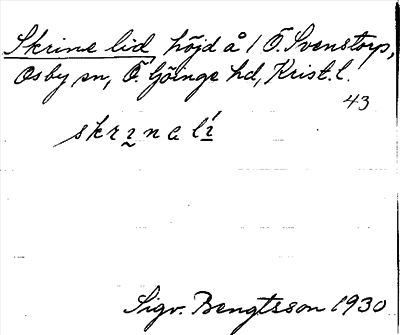 Skrine lid höjd å 1 Ö. Svenstorp,
Osby sn, Ö. Göinge hd, Krist. l.
43
skrınalí
Sigv. Bengtsson 1930